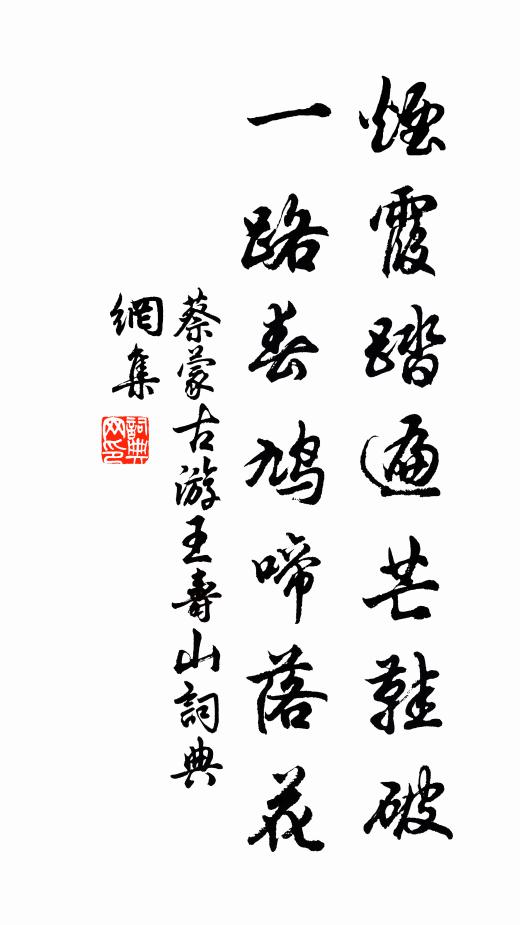 煙霞踏遍芒鞋破
一路春鳩啼落花
蔡蒙古游王壽山詞典
網集
詞典
网印